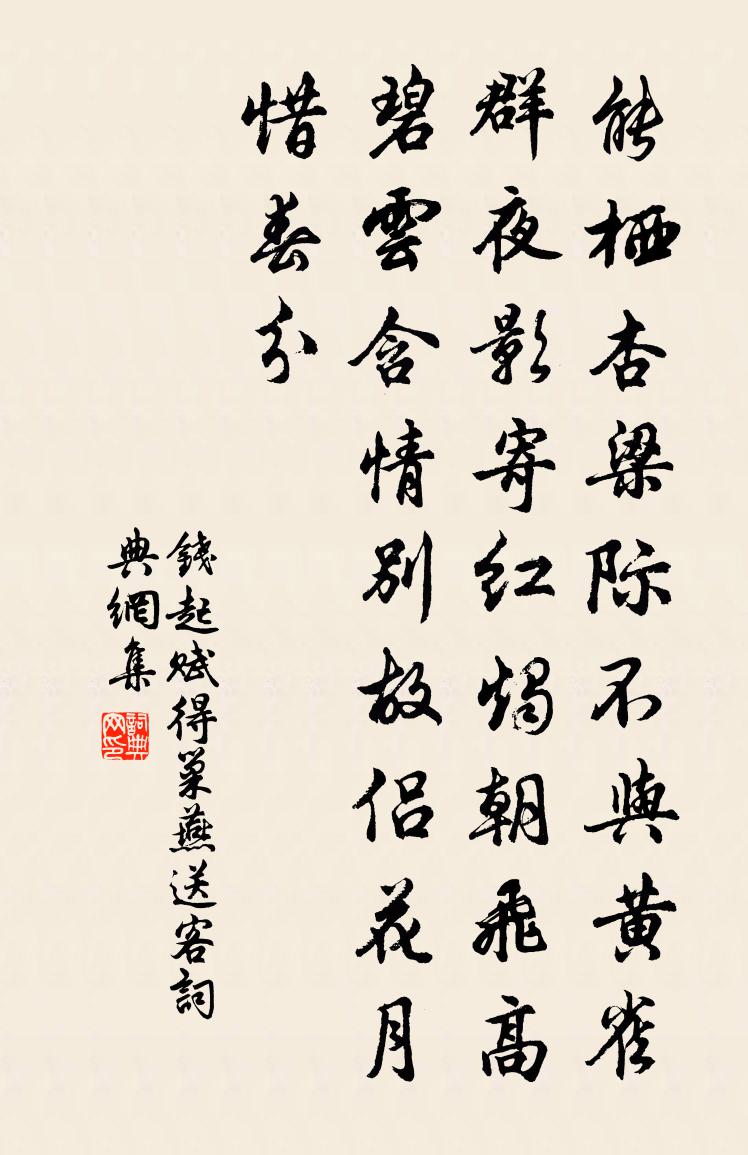 能栖杏梁际不與黄雀
群夜影寄红燭朝飛高
碧雲含情别故侣花月
惜春分
錢起赋得巢燕送客詞
典網集
詞典网印